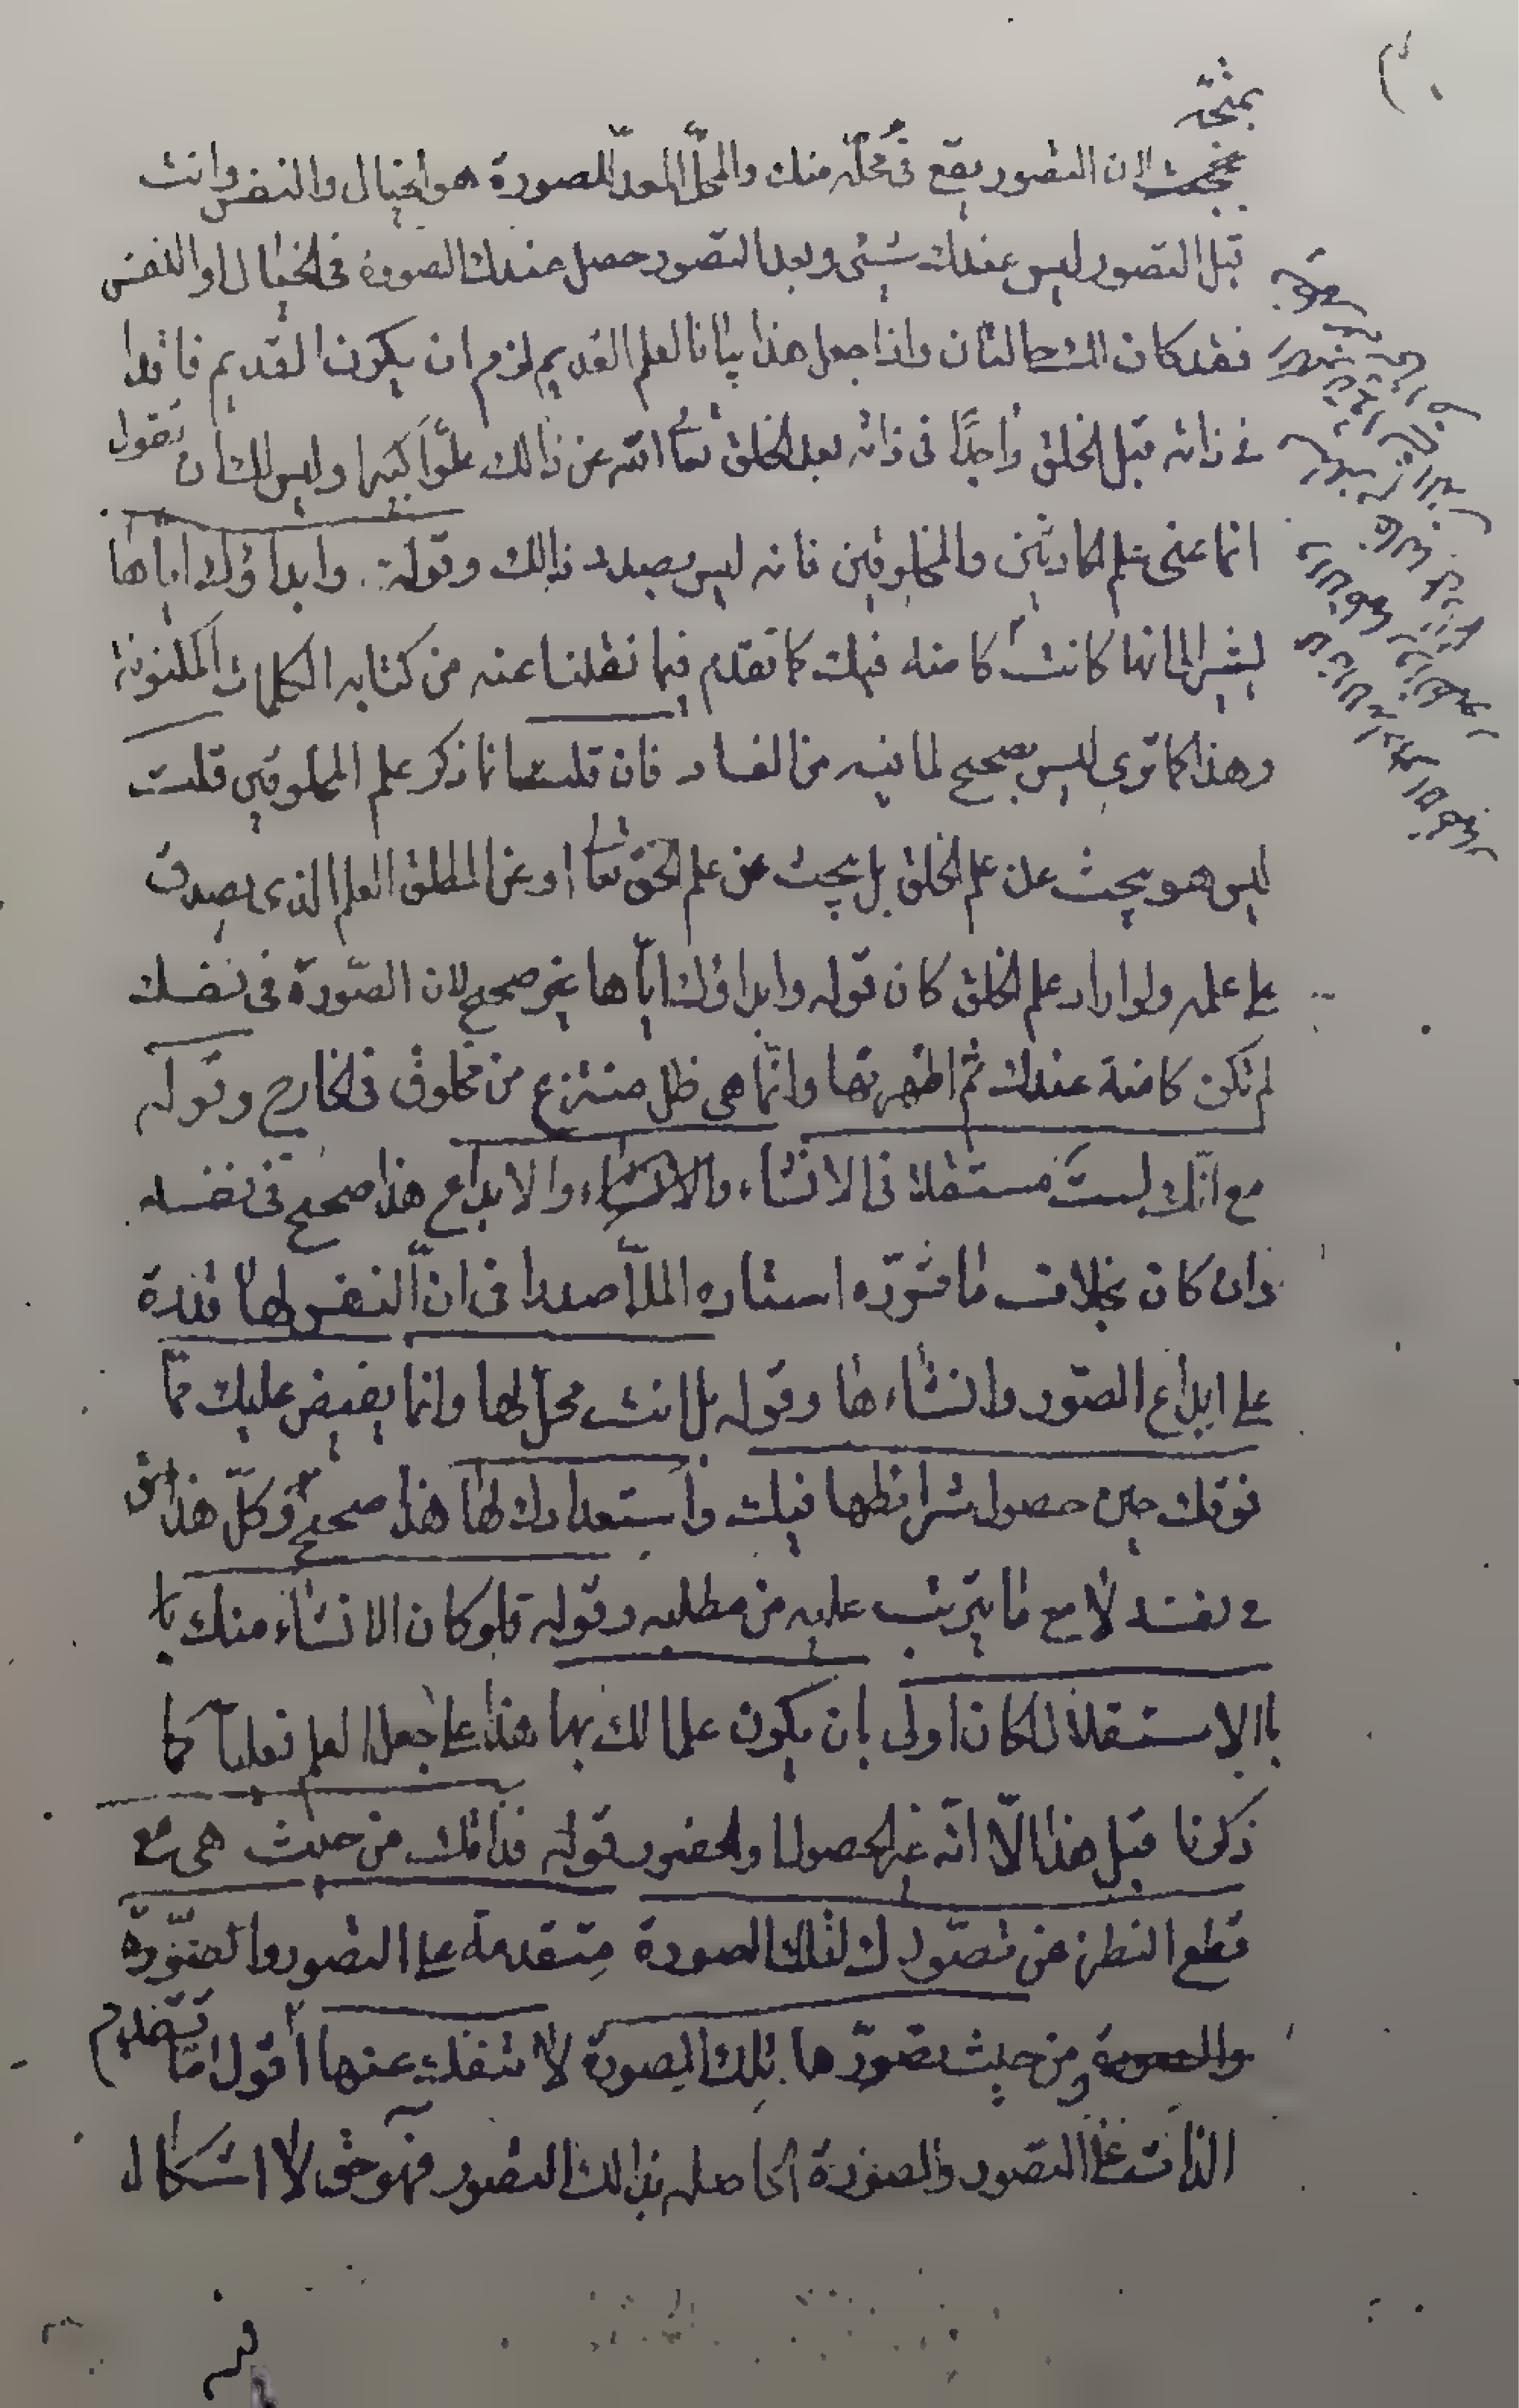 بمتجه
لان التصور يقع في محله منك والمحل المعد للصورة هو الخيال والنفس وانت
قبل التصور ليس عندك شيئ وبعد التصور حصل عندك الصورة في الخيال او النفس
فقد كان لك حالتان واذا جعل هذا بيانا لعلم القديم لزم ان يكون القديم فاقدا
في ذاته قبل الخلق واجدًا في ذاته بعد الخلق تعا الله عن ذالك علوّا كبيرا وليس لك ان تقول
انما عنى علم الحادثين والمخلوقين فانه ليس بصدد ذالك وقوله وابداؤك اياها
يشير الى انها كانت كامنة فيك كما تقدم فيما نقلنا عنه من كتابه الكلمات المكنونة
وهذا كما ترى ليس بصحيح لما فيه من الفساد فان قلت انما ذكر علم المخلوقين قلت
ليس هو يبحث عن علم الخلق بل يبحث عن علم الحق تعا او عن المطلق العلم الذى يصدق
على علمه ولو اراد علم الخلق كان قوله وابداؤك ايّاها غير صحيح لان الصّورة في نفسك
لم تكن كامنة عندك ثم اظهرتها وانّما هي ظل منتزع من مخلوق في الخارج وقوله
مع انّك لستَ مستقلا في الانشاء والابداع هذا صحيح في نفسه
وان كان بخلاف ما قرّره استاده الملّا صدرا في انّ النفس لها قدرة
على ابداع الصّور وانشاءها وقوله بل انت محلّ لها وانما يفيض عليك ممّا
فوقك حين حصول شرائطها فيك واستعدادك لها هذا صحيح وكلّ هذا
في نفسه لا مع ما يترتب عليه من مطلبه وقوله فلو كان الانشاء منك با
با الاستقلال لكان اولى بان يكون علما لك بها هذا على جعل العلم فعليا كما
ذكرنا قبل هذا الّا انّه غير الحصول والحضور قوله فذاتك من حيث هي مع
قطع النظر عن تصوّرك لتلك الصورة متقدمة على التصور والصّورة
ومن حيث تصوّرها بتلك الصورة لا تنفك عنها اقول امّا تقدم
الذات على التصور والصورة الحاصلة بذالك التصور فهو حق لا اشكال